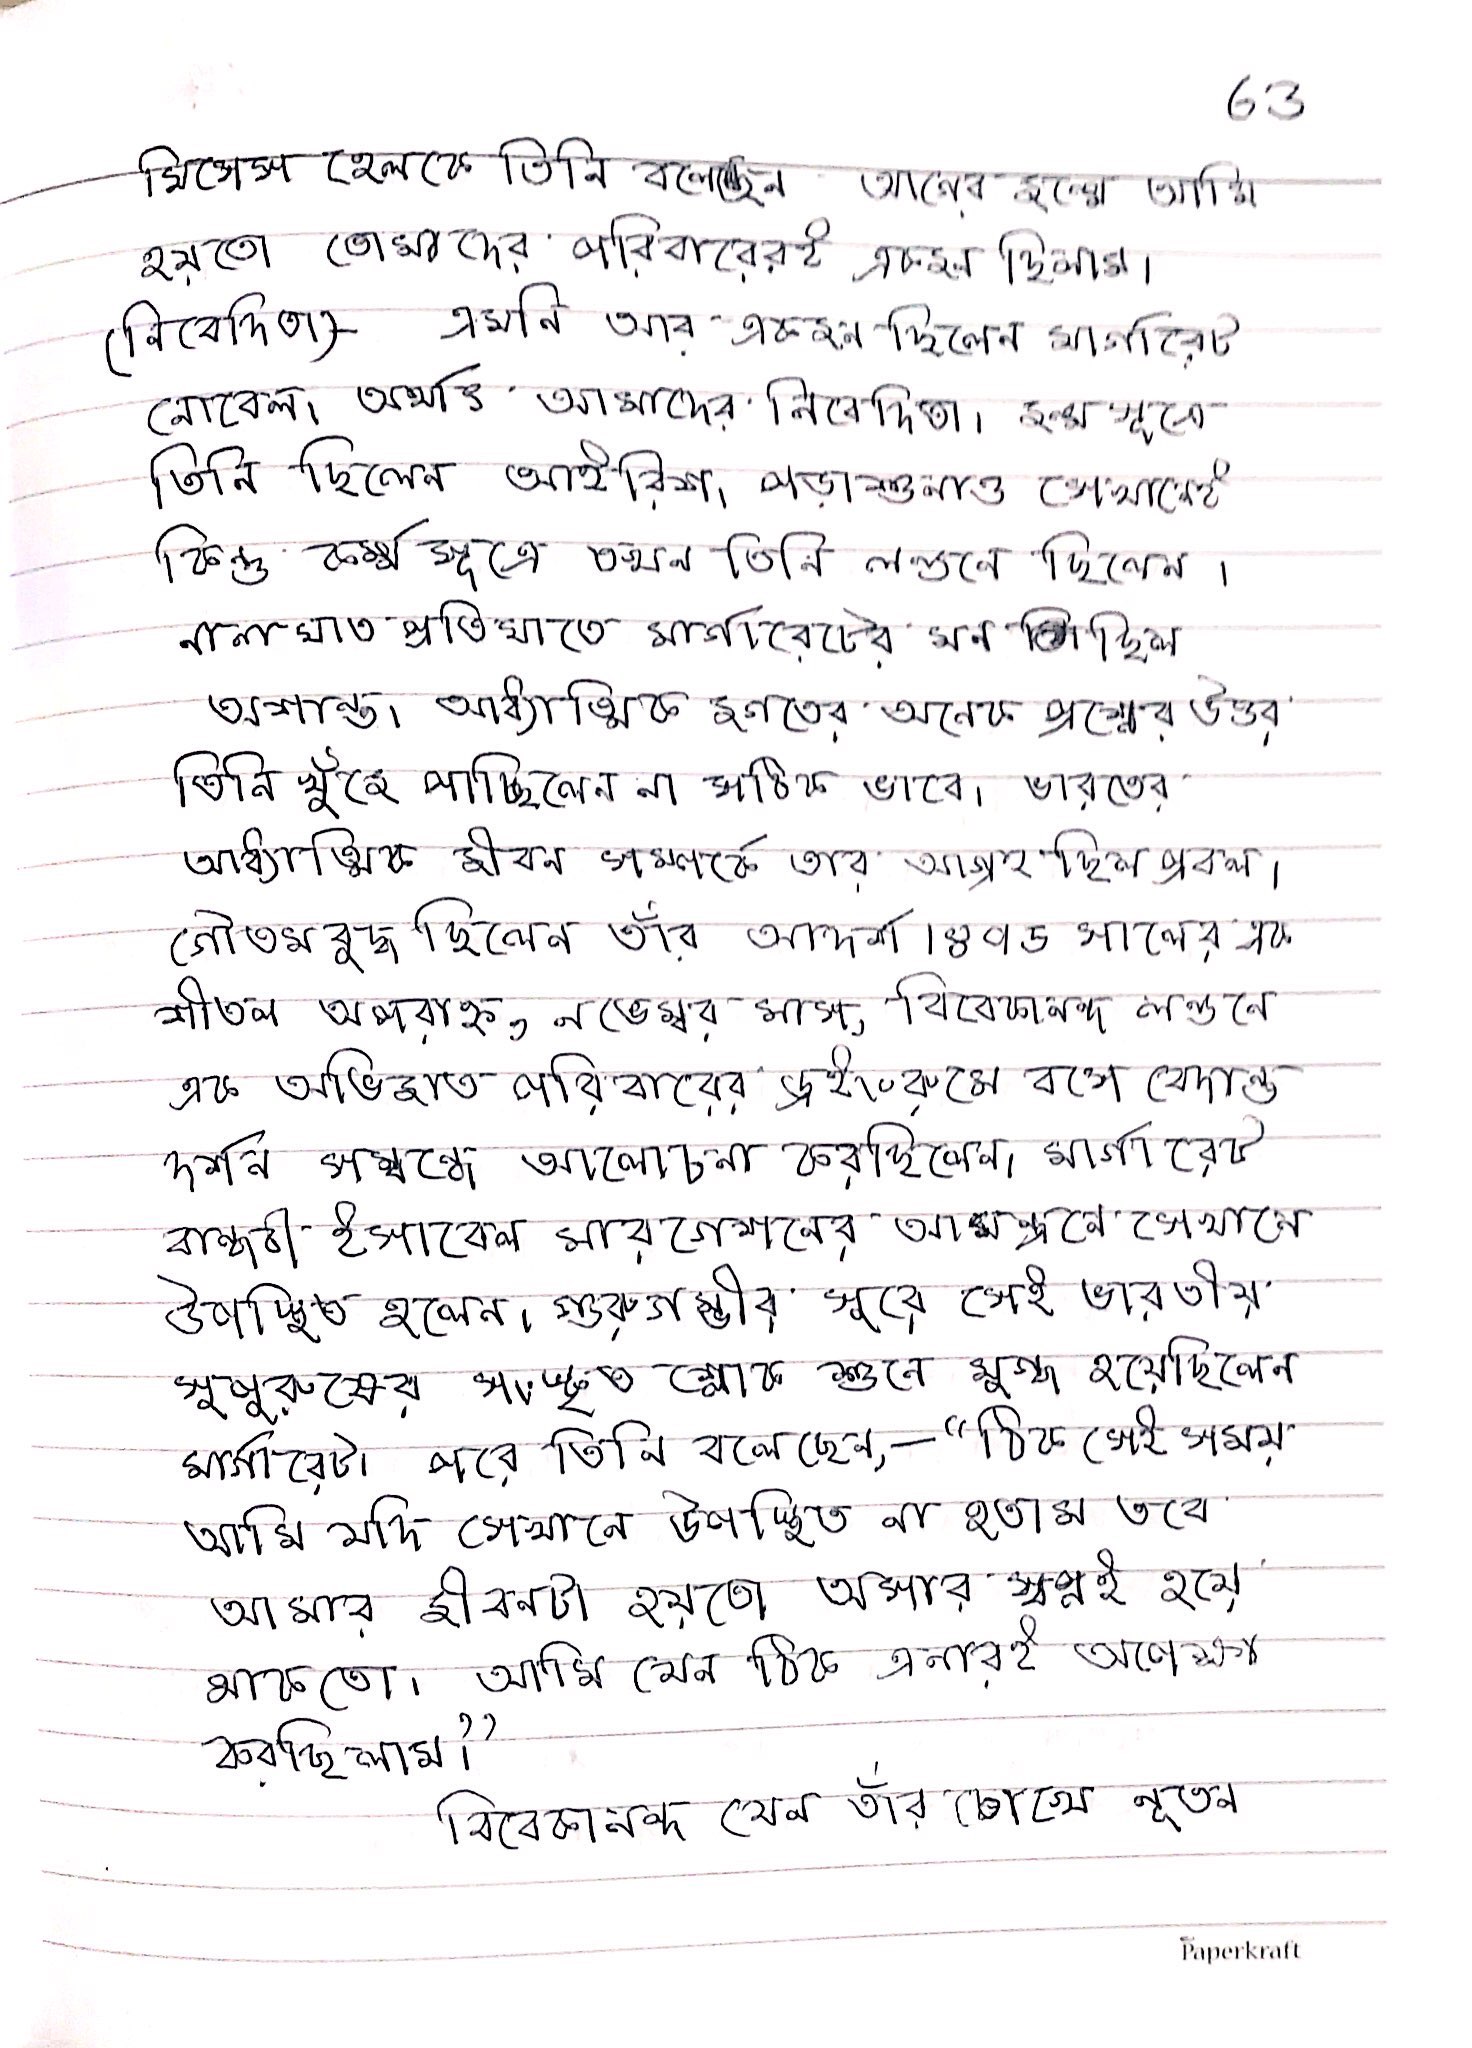 63
মিসেস হেলকে তিনি বলেছেন আগের জন্মে আমি
হয়তো তোমাদের পরিবারেরই একজন ছিলাম।
(নিবেদিতা)- এমনি আর একজন ছিলেন মার্গারেট
নোবেল। অর্থাৎ আমাদের নিবেদিতা। জন্ম সূত্রে
তিনি ছিলেন আইরিশ। পড়াশুনাও সেখানেই
কিন্তু কর্ম্ম সূত্রে তখন তিনি লন্ডনে ছিলেন।
নানা ঘাত প্রতিঘাতে মার্গারেটের মন ছিল
অশান্ত। আধ্যাত্মিক জগতের অনেক প্রশ্নের উত্তর
তিনি খুঁজে পাচ্ছিলেন না সঠিক ভাবে। ভারতের
আধ্যাত্মিক জীবন সম্পর্কে তার আগ্রহ ছিল প্রবল।
গৌতম বুদ্ধ ছিলেন তাঁর আদর্শ। সালের এক
শীতল অপরাহ্ন, নভেম্বর মাস, বিবেকানন্দ লন্ডনে
এক অভিজাত পরিবারের ড্রইংরুমে বসে বেদান্ত
দর্শন সম্বন্ধে আলোচনা করছিলেন। মার্গারেট
বান্ধবী ইসাবেল মারগেসনের আমন্ত্রনে সেখানে
উপস্থিত হলেন। গুরুগম্ভীর সুরে সেই ভারতীয়
সুপুরুষের সংস্কৃত শ্লোক শুনে মুগ্ধ হয়েছিলেন
মার্গারেট। পরে তিনি বলেছেন,—“ঠিক সেই সময়
আমি যদি সেখানে উপস্থিত না হতাম তবে
আমার জীবনটা হয়তো অসার স্বপ্নই হয়ে
থাকতো। আমি যেন ঠিক এনারই অপেক্ষা
করছিলাম।”
বিবেকানন্দ যেন তাঁর চোখে নূতন
Paperkraft